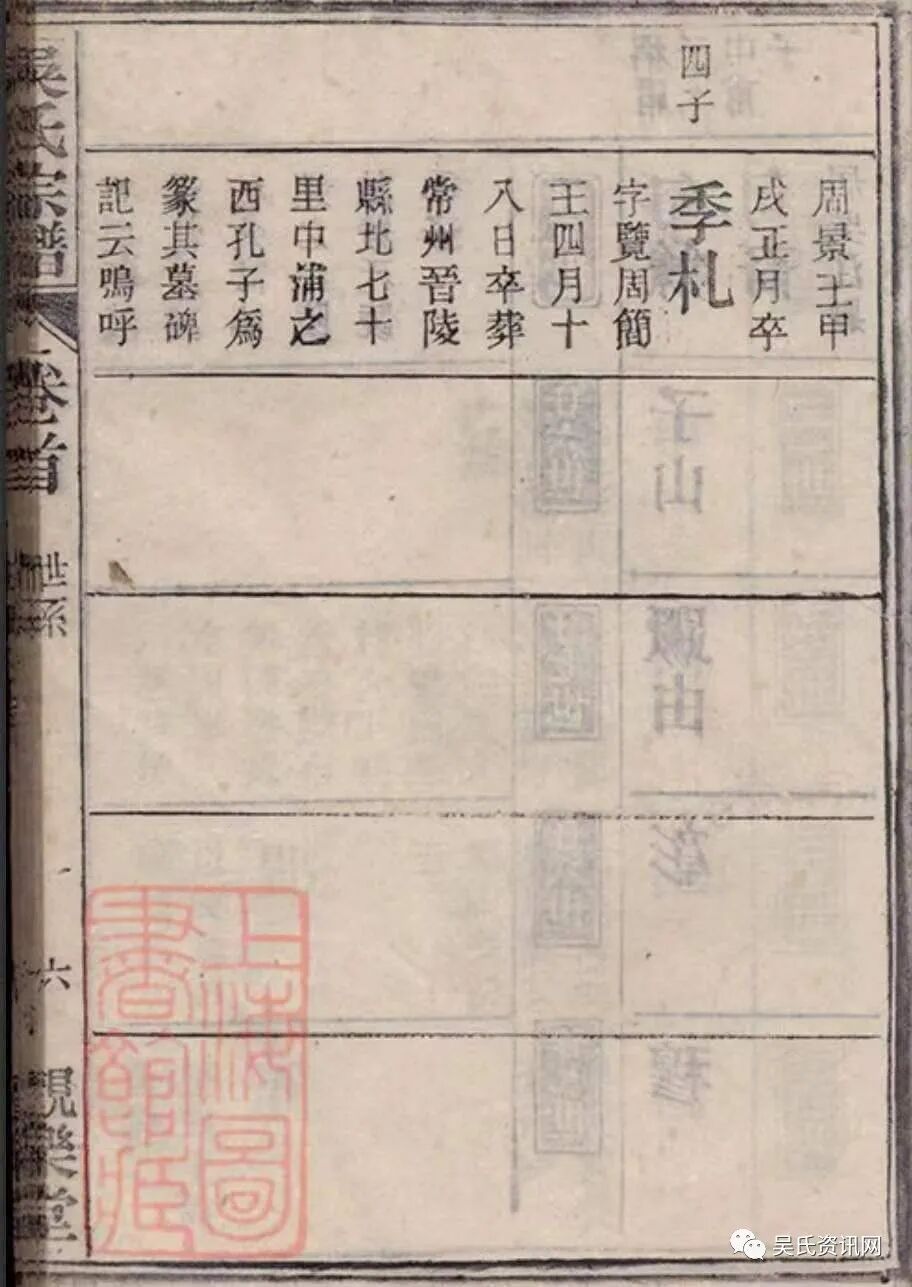 四子
周景王甲
戌正月卒
季札
字覽周簡
王四月十
八日卒葬
常州晉陵
縣北七十
里中浦之
西孔子爲
篆其墓碑
記云嗚呼
吳氏宗譜
卷首
世系
六
觀樂堂
上海圖
書館藏
吴氏资讯网